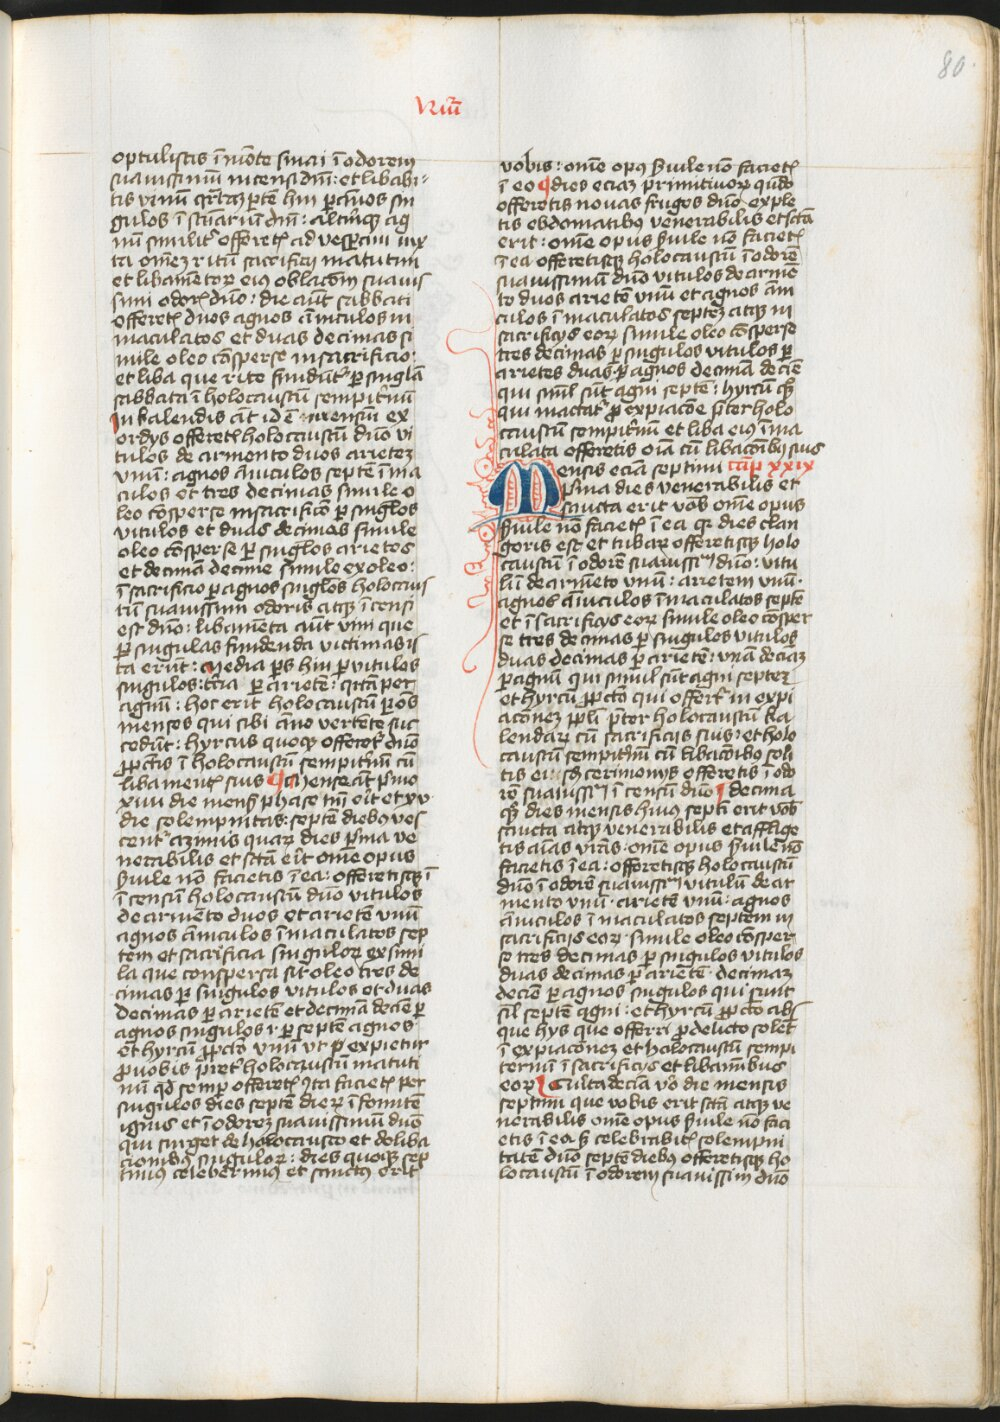 80
optulistis ī mōte sinai ī odorem
suauissimū incensi dn̄i: et libabi-
tis vinū q̄rtā p̄tē hin p̱ agnos sin
gulos ī sc̄uariū dn̄i: altēq̄ ag
nū similit̉ offeret̉ ad vesp̱am iux
ta omēz ritū sacrificij matutini
et libamētoꝝ eiꝰ oblac̄om suauis
simi odoꝝ dn̄o: die aūt sabbati
offeret̉ duos agnos āniculos in
maculatos et duas decimas si
mile oleo cōsperse in sacrificio:
et liba que rite fūdūt̉ p̱ singl̄a
sabbata ī holocaustū sempit̉nū
In kalendis aūt id ē mensiū ex
ordijs offeret̉ holocaustū dn̄o vi
tulos de armento duos arietez
vnū: agnos āniculos septē ī ma
culos et tres decimas simile o
leo cōsperse in sacrificō p̱ singl̄os
vitulos et duas decimas simile
oleo cōsperse p̱ singl̄os arietes
et decimā decime simile ex oleo:
ī sacrificio p̱ agnos singl̄os holocaus
tū suauissim odoris atq̄ ī censi
est dn̄o: libamēta aūt vini que
p̱ singulas fundenda victimas is
ta erūt: media p̱s hin p̱ vitulos
singulos: t̉cia p̱ arietē: q̄rta per
agnū: hoc erit holocaustū p̱ oēs
menses qui sibi āno vertēte suc
cedūt: hyrcus quoq̄ offeret̉ dn̄o
p̱ pctīs ī holocaustū sempit̉nū cū
libament̉ suis ¶ Mense aūt p̉mo
xiiii die mens̉ phase dn̄i er̉it et xv
die solempnitas: septē diebꝰ ves
cent̉ azimis quaꝝ dies p̉ma ve
nerabilis et sctā er̄it om̄e opus
s̉uile nō facietis ī ea: offeretisq̄ ī
ī censū holocaustū dn̄o vitulos
de armēto duos et arietē vnū
agnos āniculos ī maculatos sep
tem et sacrificia singuloꝝ ex simi
la que conspersa sit oleo tres de
cimas p̱ singulos vitulos et duas
decimas p̱ arietē et decimā decīe p̱
agnos singulos .i. p̱ septē agnos
et hyrcū p̱ pctō vnū vt expietur
p̱ vobis p̉ter holocaustū matuti
nū qd̄ semp̱ offeret̉ Ita faciet̉ per
singulos dies septē dieꝝ ī fomitē
ignis et ī odorez suauissimū dn̄o
qui surget de holocausto et de liba
cionibꝰ singuloꝝ: dies quoq̄ sep
timꝰ celeberrimꝰ et sanctꝰ erit
vobis: om̄e opꝰ s̉uile nō faciet̉
ī eo ¶ dies eciaz primitiuoꝝ qn̄do
offeretis nouas fruges dn̄o exple
tis ebdomatibꝰ venerabilis et sctā
erit: om̄e opus s̉uile nō faciet̉
ī ea offeretisq̄ holocaustū ī odorē
suauissimū dn̄o vitulos de armē
to duos arietē vnū et agnos ān
iculos ī maculatos septez atq̄ in
sacrificijs eoꝝ simile oleo cōsperse
tres decimas p̱ singulos vitulos p̱
arietes duas p̱ agnos decimā decīe
qui siml̄ sūt agni septē: hyrcū q̄
qui mactat̉ p̱ expiacōe p̉ter holo
caustū sempit̉nū et liba eiꝰ ī ma
culata offeretis oīa cū libacōnibꝰ suis
Mensis eciā septimi cap̉ xxix
p̉ma dies venerabilis et
sancta erit vob̉ om̄e opus
s̉uile nō faciet̉ ī ea q̉ dies clan
goris est et tubaꝝ offeretisq̄ holo
caustū ī odorē suauissī dn̄o: vitu
lū de armēto vnū: arietem vnū:
agnos āniculos ī maculatos septē
et ī sacrificijs eoꝝ simile oleo cōsper
se tres decimas p̱ singulos vitulos
duas decimas p̱ arietē: vnā deciāz
p̱ agnū qui simul sūt agni septez
et hyrcū p̱ pctō qui offert̉ in expi
acōnez pp̄li p̉ter holocaustū ka
lendaꝝ cū sacrificijs suis: et holo
caustū sempit̉nū cū libacōibꝰ soli
tis eiusdē cerimonijs offeretis ī odo
rē suauissī ī censū dn̄o ¶ decima
q̄ dies mensis huiꝰ septī erit vob̉
sancta atq̄ venerabilis et afflige
tis aīas vr̄as: om̄e opus s̉uile nō
facietis ī ea: offeretisq̄ holocaustū
dn̄o ī odorē suauissī vitulū de ar
mento vnū: arietē vnū: agnos
āniculos ī maculatos septem in
sacrificijs eoꝝ: simile oleo cōsper
se tres decimas p̱ singulos vitulos
duas decimas p̱ arietē: decimaz
decīe p̱ agnos singulos qui sunt
sīl septē agni: et hyrcū p̱ pctō abs
que hijs que offerri p̱ delicto solēt
ī expiacōnez et holocaustū sempi
ternū ī sacrificijs et libamībus
eoꝝ Quīta decīa v̉o die mensis
septimi que vobis erit sctā atq̄ ve
nerabilis om̄e opus s̉uile nō faci
etis ī ea s̄ celebrabit̉ solempni
tatē dn̄o septē diebꝰ offeretisq̄ ho
locaustū ī odorem suauissim dn̄o